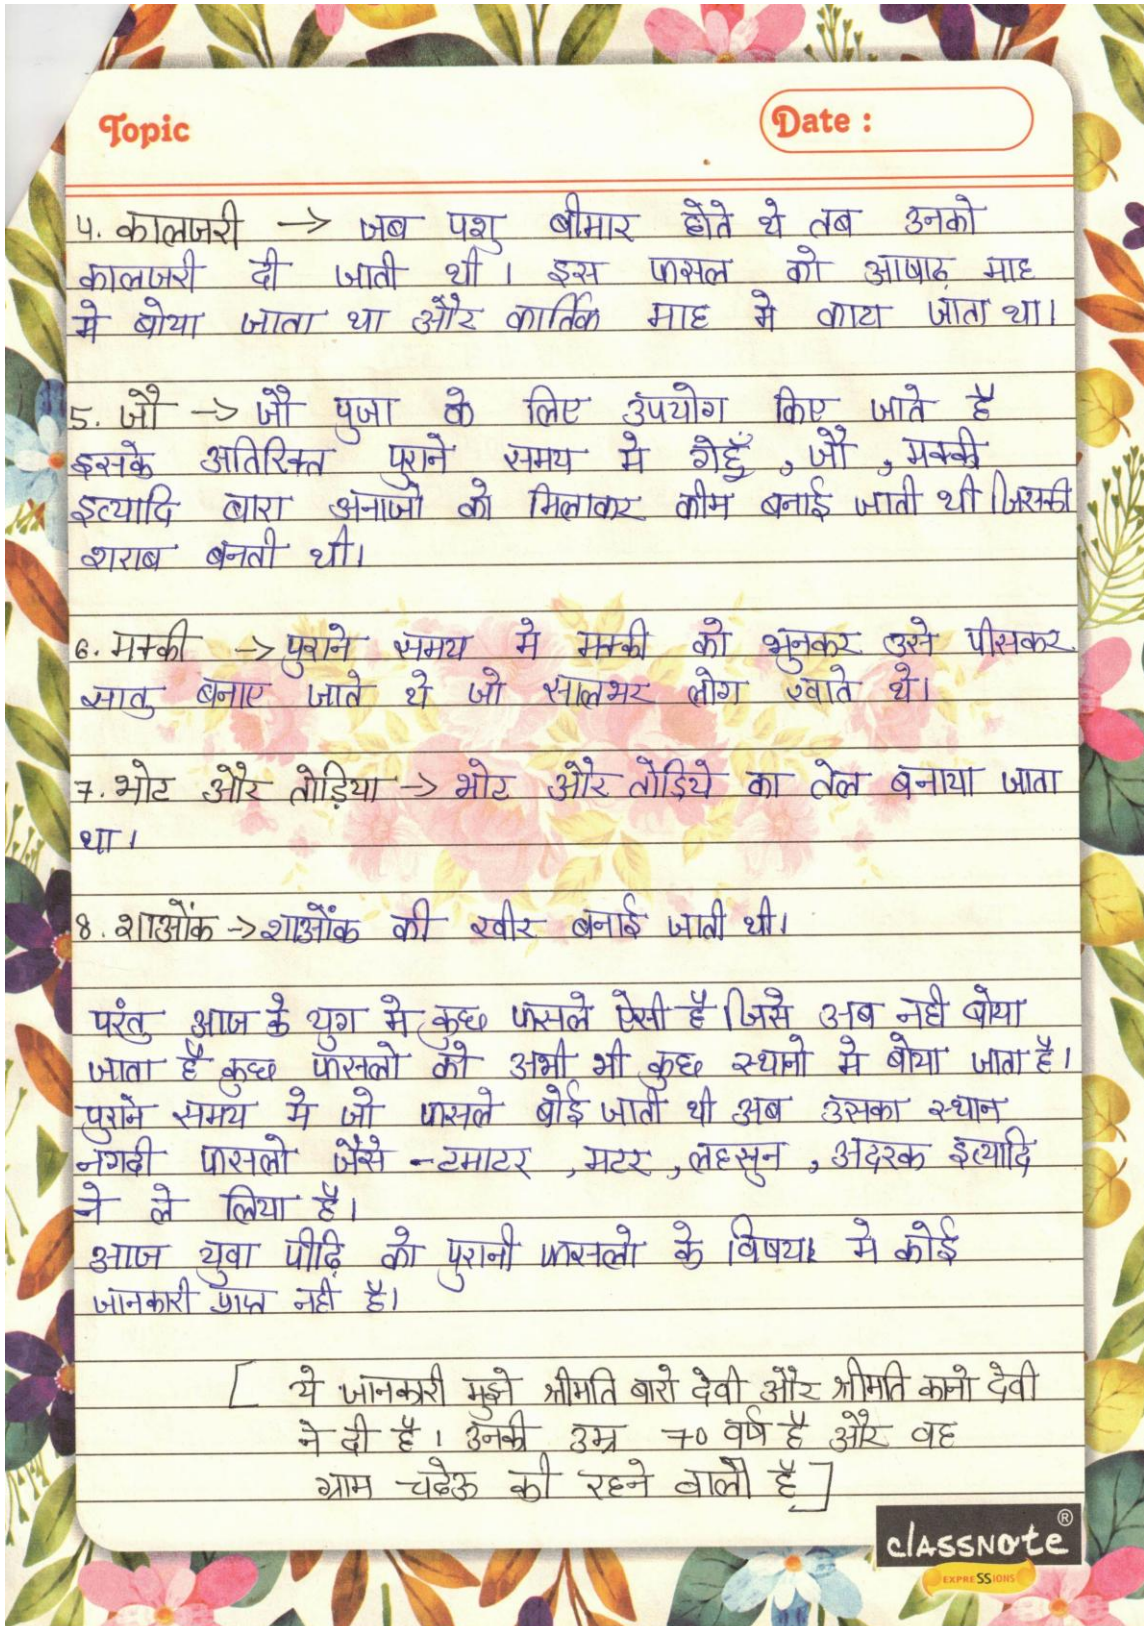 Topic
Date :
4. कालजरी -> जब पशु बीमार होते थे तब उनको
कालजरी दी जाती थी। इस फसल को आषाढ़ माह
मे बोया जाता था और कार्तिक माह मे काटा जाता था।
5. जौ -> जौ पुजा के लिए उपयोग किए जाते है
इसके अतिरिक्त पुराने समय मे गेहूँ , जौ , मक्की
इत्यादि बारा अनाजो को मिलाकर कीम बनाई जाती थी जिसकी
शराब बनती थी।
6. मक्की -> पुराने समय मे मक्की को भुनकर उसे पीसकर
सातु बनाए जाते थे जो सालभर लोग खाते थे।
7. भोट और तोड़िया -> भोट और तोडिये का तेल बनाया जाता
था।
8. शाओंक -> शाओंक की खीर बनाई जाती थी।
परंतु आज के युग मे कुछ फसले ऐसी है जिसे अब नही बोया
जाता है कुछ फसलो को अभी भी कुछ स्थानो मे बोया जाता है।
पुराने समय मे जो फसले बोई जाती थी अब उसका स्थान
नगदी फसलो जैसे - टमाटर , मटर , लहसुन , अदरक इत्यादि
ने ले लिया है।
आज युवा पीढ़ि को पुरानी फसलो के विषय मे कोई
जानकारी प्राप्त नही है।
[ ये जानकारी मुझे श्रीमति बारो देवी और श्रीमति कानो देवी
ने दी है। उनकी उम्र 70 वर्ष है और वह
ग्राम चदेऊ की रहने वाली है ]
classnote ®
EXPRESSIONS